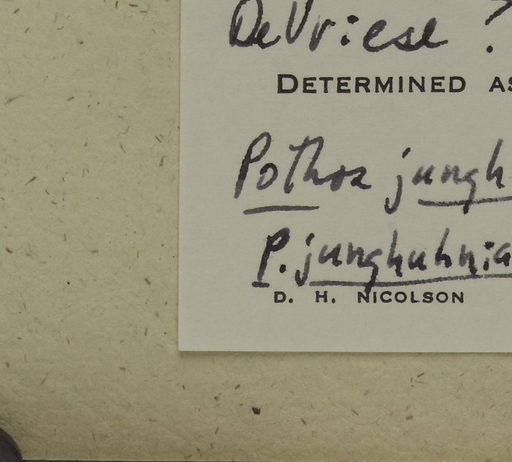 DeVriese ?
DETERMINED AS
Pothos jungh
P. junghuhnia
D. H. NICOLSON